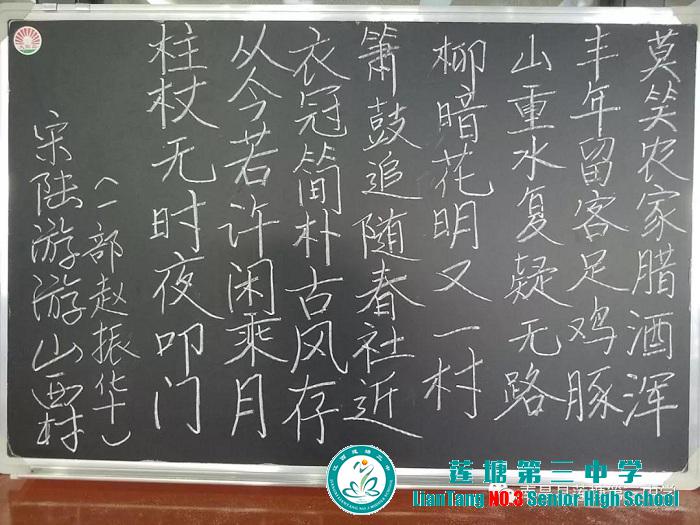 莫笑农家腊酒浑
丰年留客足鸡豚
山重水复疑无路
柳暗花明又一村
箫鼓追随春社近
衣冠简朴古风存
从今若许闲乘月
柱杖无时夜叩门
(一部赵振华)
宋陆游游山西村
莲塘第三中学
LianTang NO.3 Senior High School